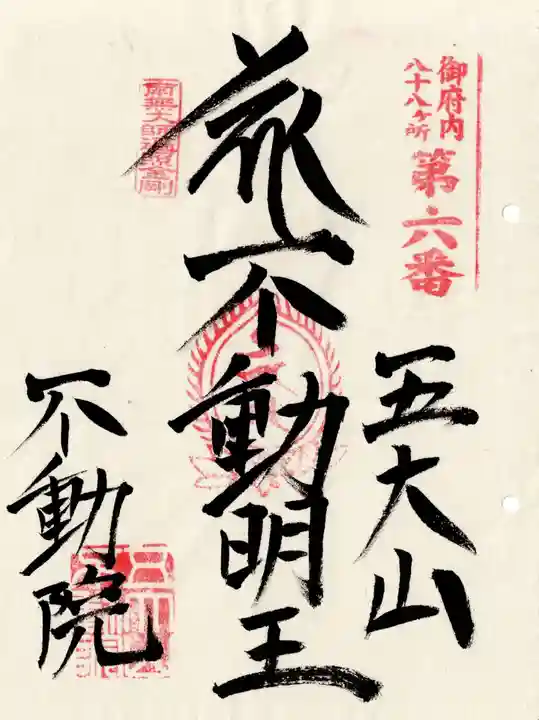 御府内
八十八ヶ所
第六番
五大山
花不動明王
南無大師遍照金剛
不動院